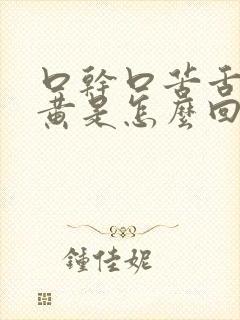 口幹口苦舌
黃是怎麼回
鍾佳妮